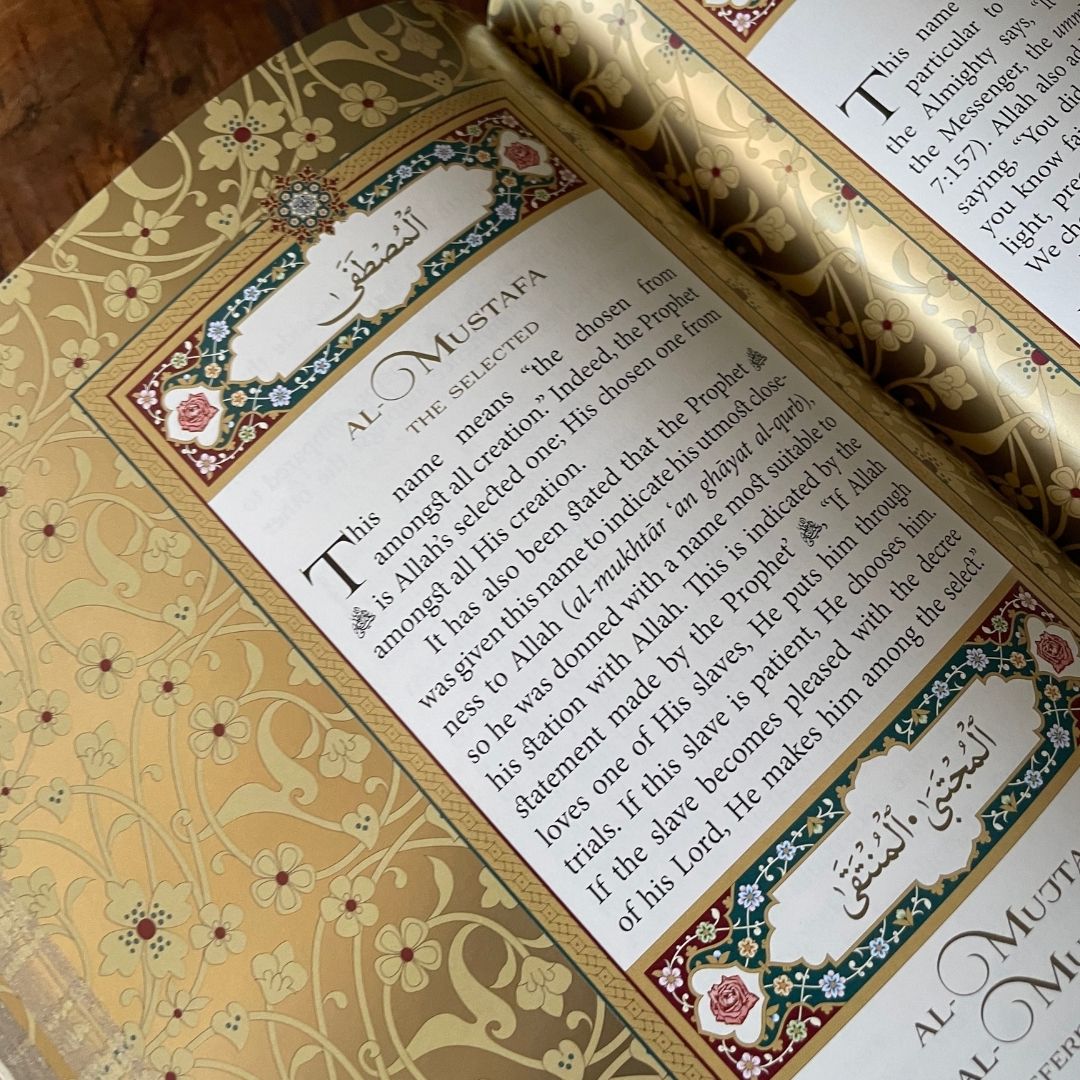 ٱلْمُصْطَفَىٰ
AL-MUSTAFA
THE SELECTED
This name means “the chosen from
amongst all creation.” Indeed, the Prophet
ﷺ is Allah’s selected one; His chosen one from
amongst all His creation.
It has also been stated that the Prophet ﷺ
was given this name to indicate his utmost close-
ness to Allah (al-mukhtār ‘an ghāyat al-qurb),
so he was donned with a name most suitable to
his station with Allah. This is indicated by the
statement made by the Prophet ﷺ, “If Allah
loves one of His slaves, He puts him through
trials. If this slave is patient, He chooses him.
If the slave becomes pleased with the decree
of his Lord, He makes him among the select.”
ٱلْمُجْتَبَىٰ • ٱلْمُنْتَقَىٰ
AL-MUJTA
AL-MU
This name
particular to
the Almighty says,
the Messenger, the umm
7:157). Allah also ad
saying, “You did
you know fai
light, pre
We ch